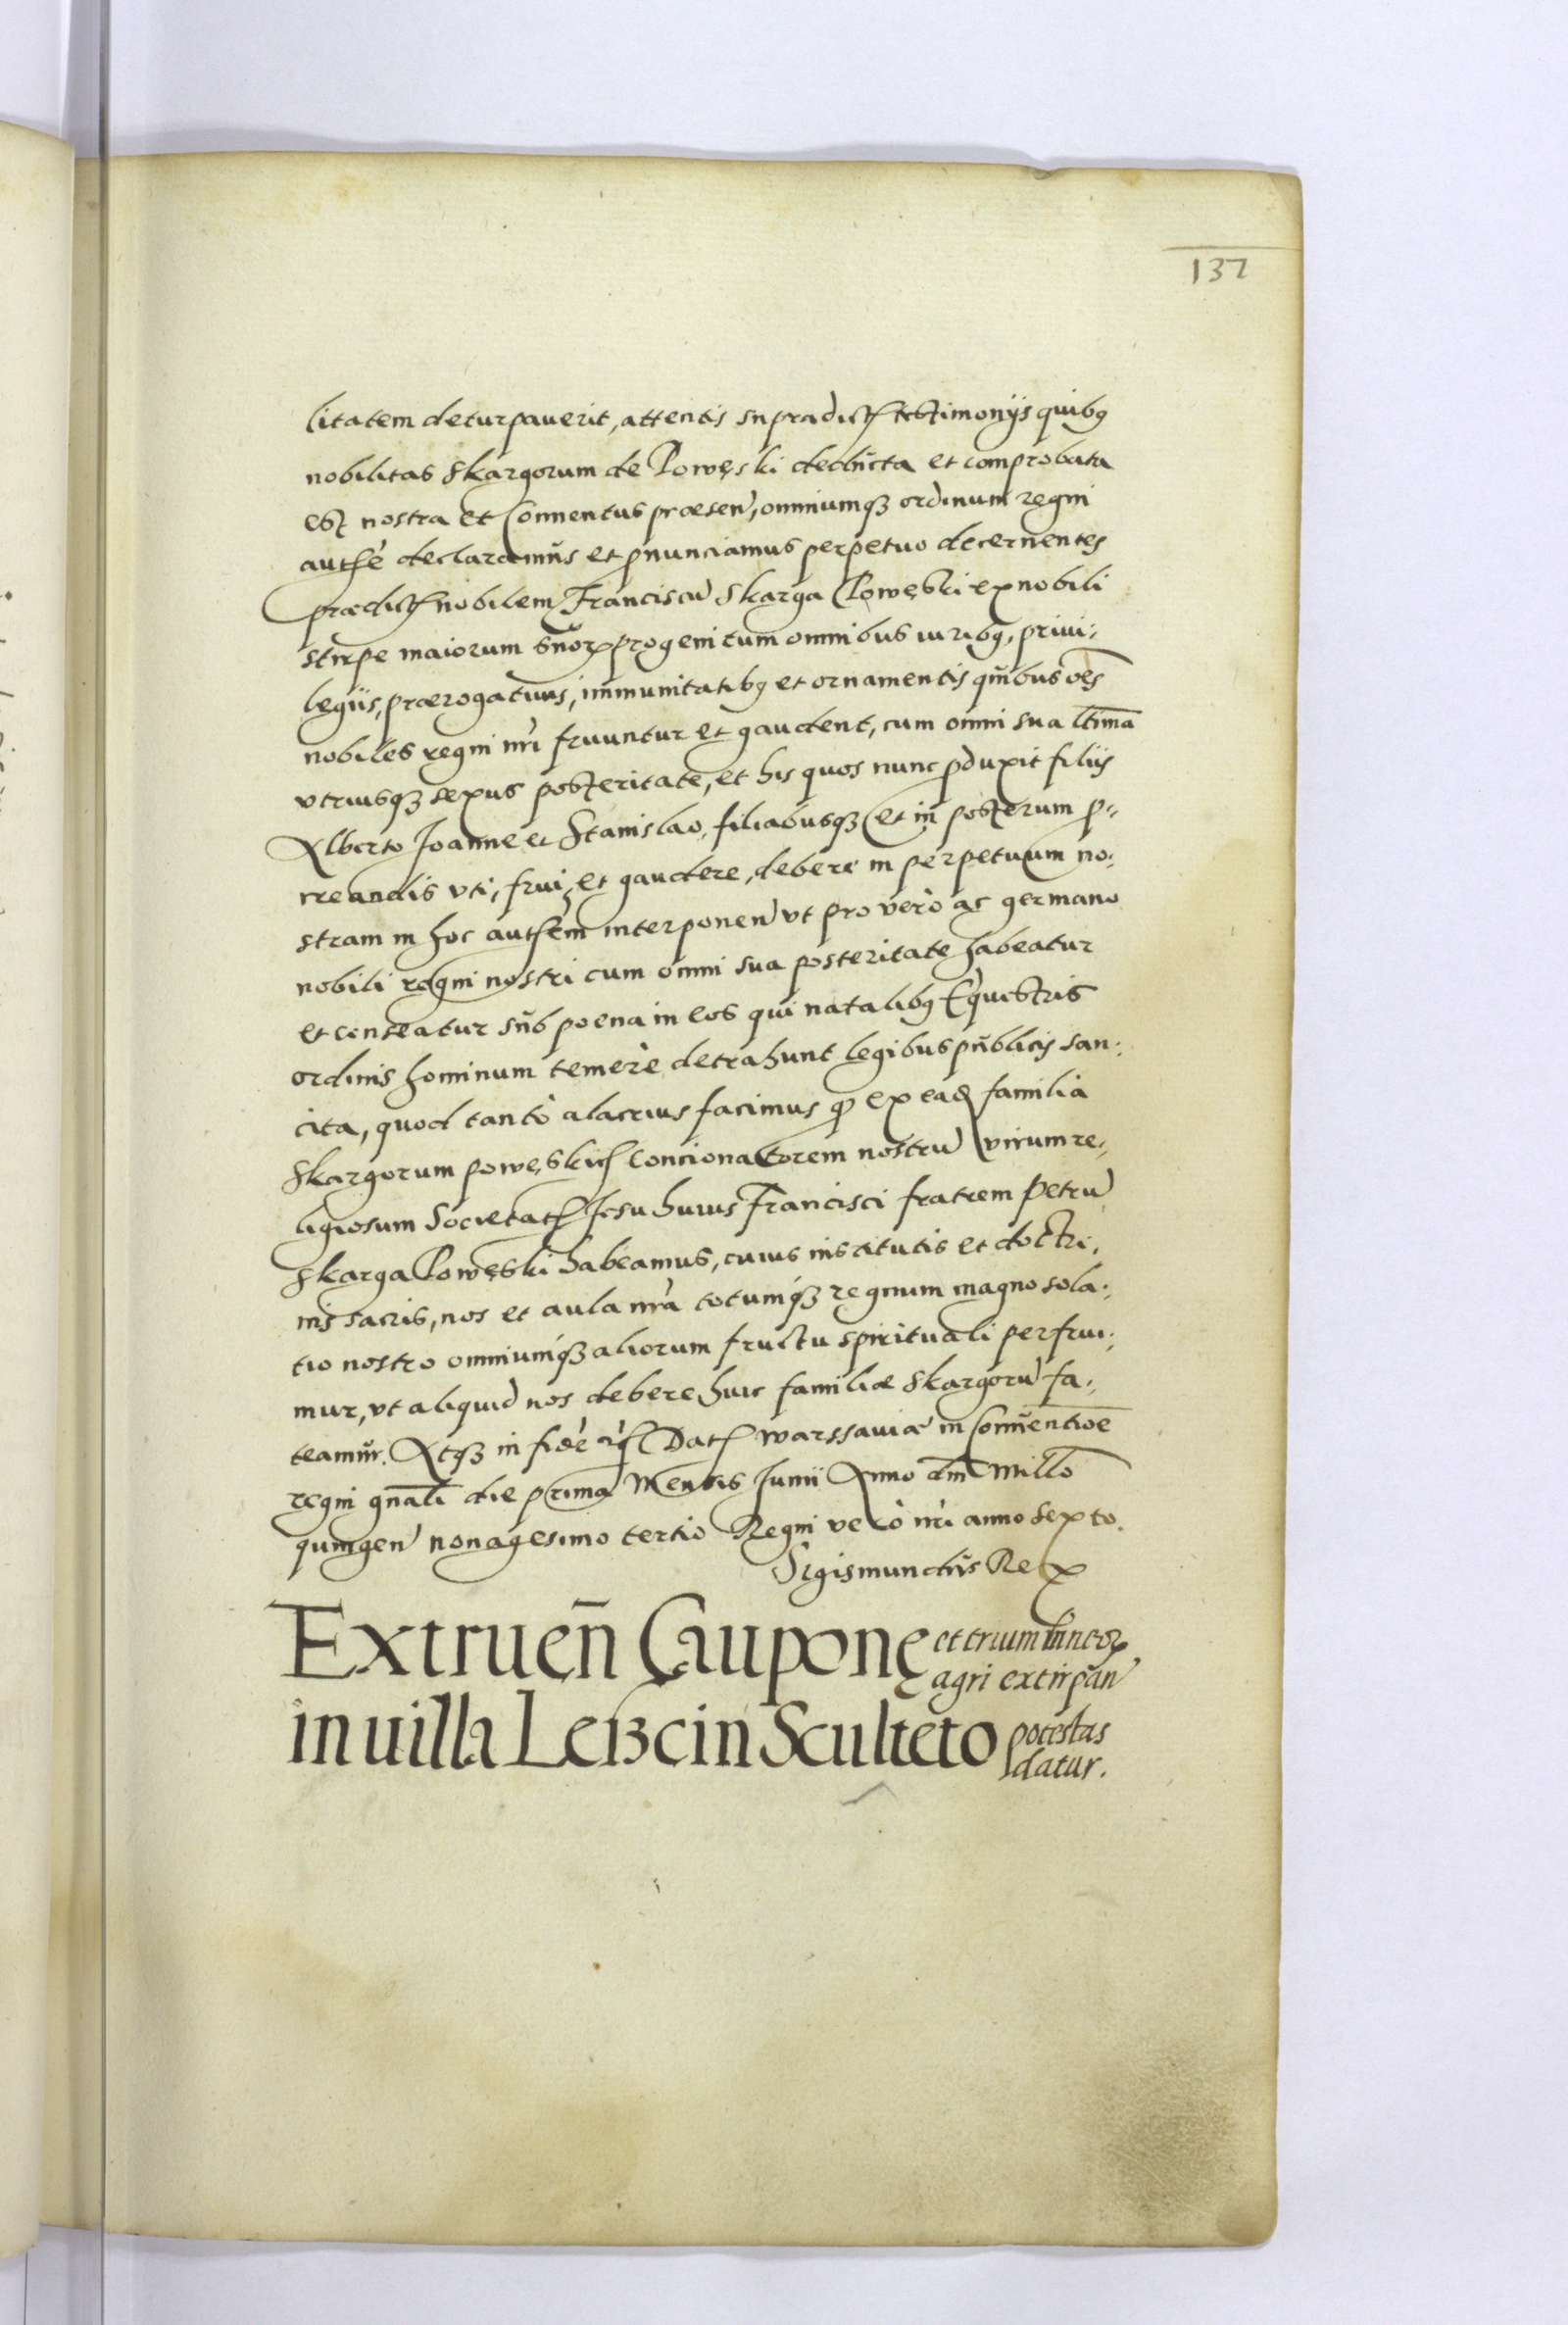 137
litatem deturpauerit, attentis supradictꝭ testimonÿs quibꝫ
nobilitas Skargorum de Powęski deducta et comprobata
est nostra et Conuentus præsen̄, omniumqꝫ ordinum regni
authē declaramus et ꝓnunciamus perpetuo decernentes
prædictꝭ nobilem Franciscū Skarga Powęski ex nobili
stirpe maiorum suorꝝ progenitum omnibus iuribꝫ, priui:
legiis, prærogatiuis, immunitatibꝫ et ornamentis quibus oēs
nobiles regni nr̄i fruuntur et gaudent, cum omni sua ltīma
vtriusqꝫ sexus posteritate, et his quos nunc ꝓduxit filiis
Alberto Joanne et Stanislao, filiabusqꝫ et in posterum ꝓ:
creandis vti, frui, et gaudere, debere in perpetuum no:
stram in hoc authēm interponen̄ vt pro vero ac germano
nobili regni nostri cum omni sua posteritate habeatur
et censeatur sub poena in eos qui natalibꝫ Equestris
ordinis hominum temerè detrahunt legibus publicis san:
cita, quod tantò alacrius facimus qꝫ ex eadꝫ familia
Skargorum powęskich Concionatorem nostrū virum re:
ligiosum Societatꝭ Jesu huius Francisci fratrem Petrū
Skarga Powęski habeamus, cuius institutis et doctri:
nis sacris, nos et aula nr̄a totumqꝫ regnum magno sola:
tio nostro omniumqꝫ aliorum fructu spirituali perfrui:
mur, vt aliquid nos debere huic familiæ Skargorū fa:
teamur. Atqꝫ in fidē rꝭ Datꝭ Warssauiæ in Conuentioē
regni gnali die prima Mensis Junii Anno dni Millo
quingen̄ nonagesimo tertio Regni verò nr̄i anno sexto.
Sigismundus Rex
Extruen̄ Cauponę et trium laneorꝝ
agri extirpan̄
in uilla Leßcin Sculteto potestas
datur.